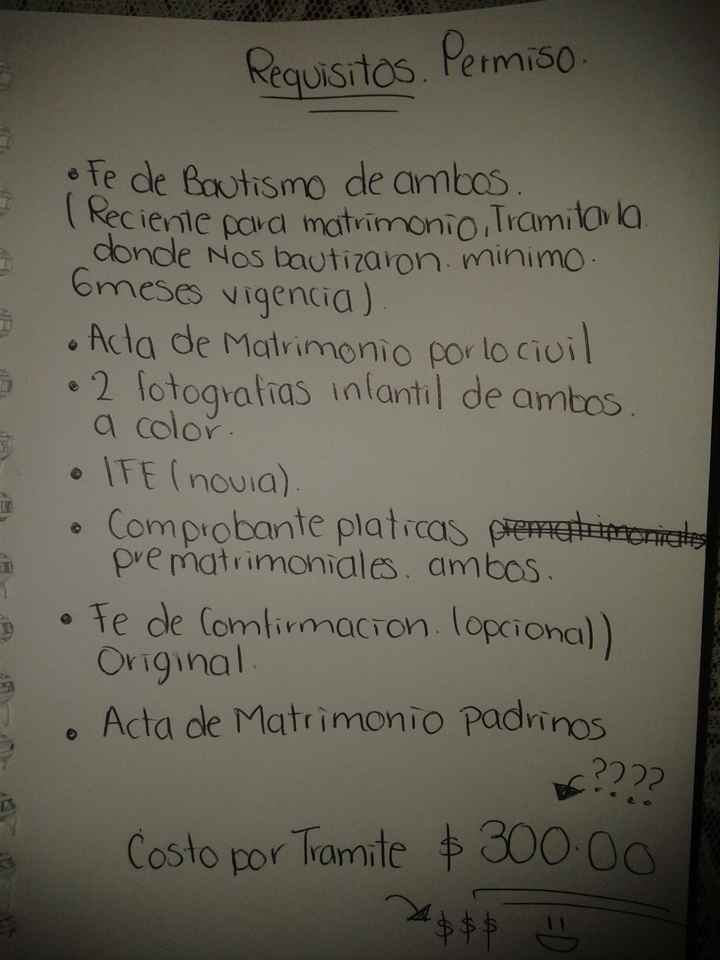 Requisitos. Permiso.
• Fe de Bautismo de ambos.
(Reciente para matrimonio, Tramitarla
donde Nos bautizaron. minimo.
6 meses vigencia).
• Acta de Matrimonio por lo civil
• 2 fotografias infantil de ambos.
a color.
• IFE (novia).
• Comprobante platicas prematrimoniales
prematrimoniales. ambos.
• Fe de Comfirmacion. (opcional))
Original.
• Acta de Matrimonio padrinos
????
Costo por Tramite $ 300.00
$$$